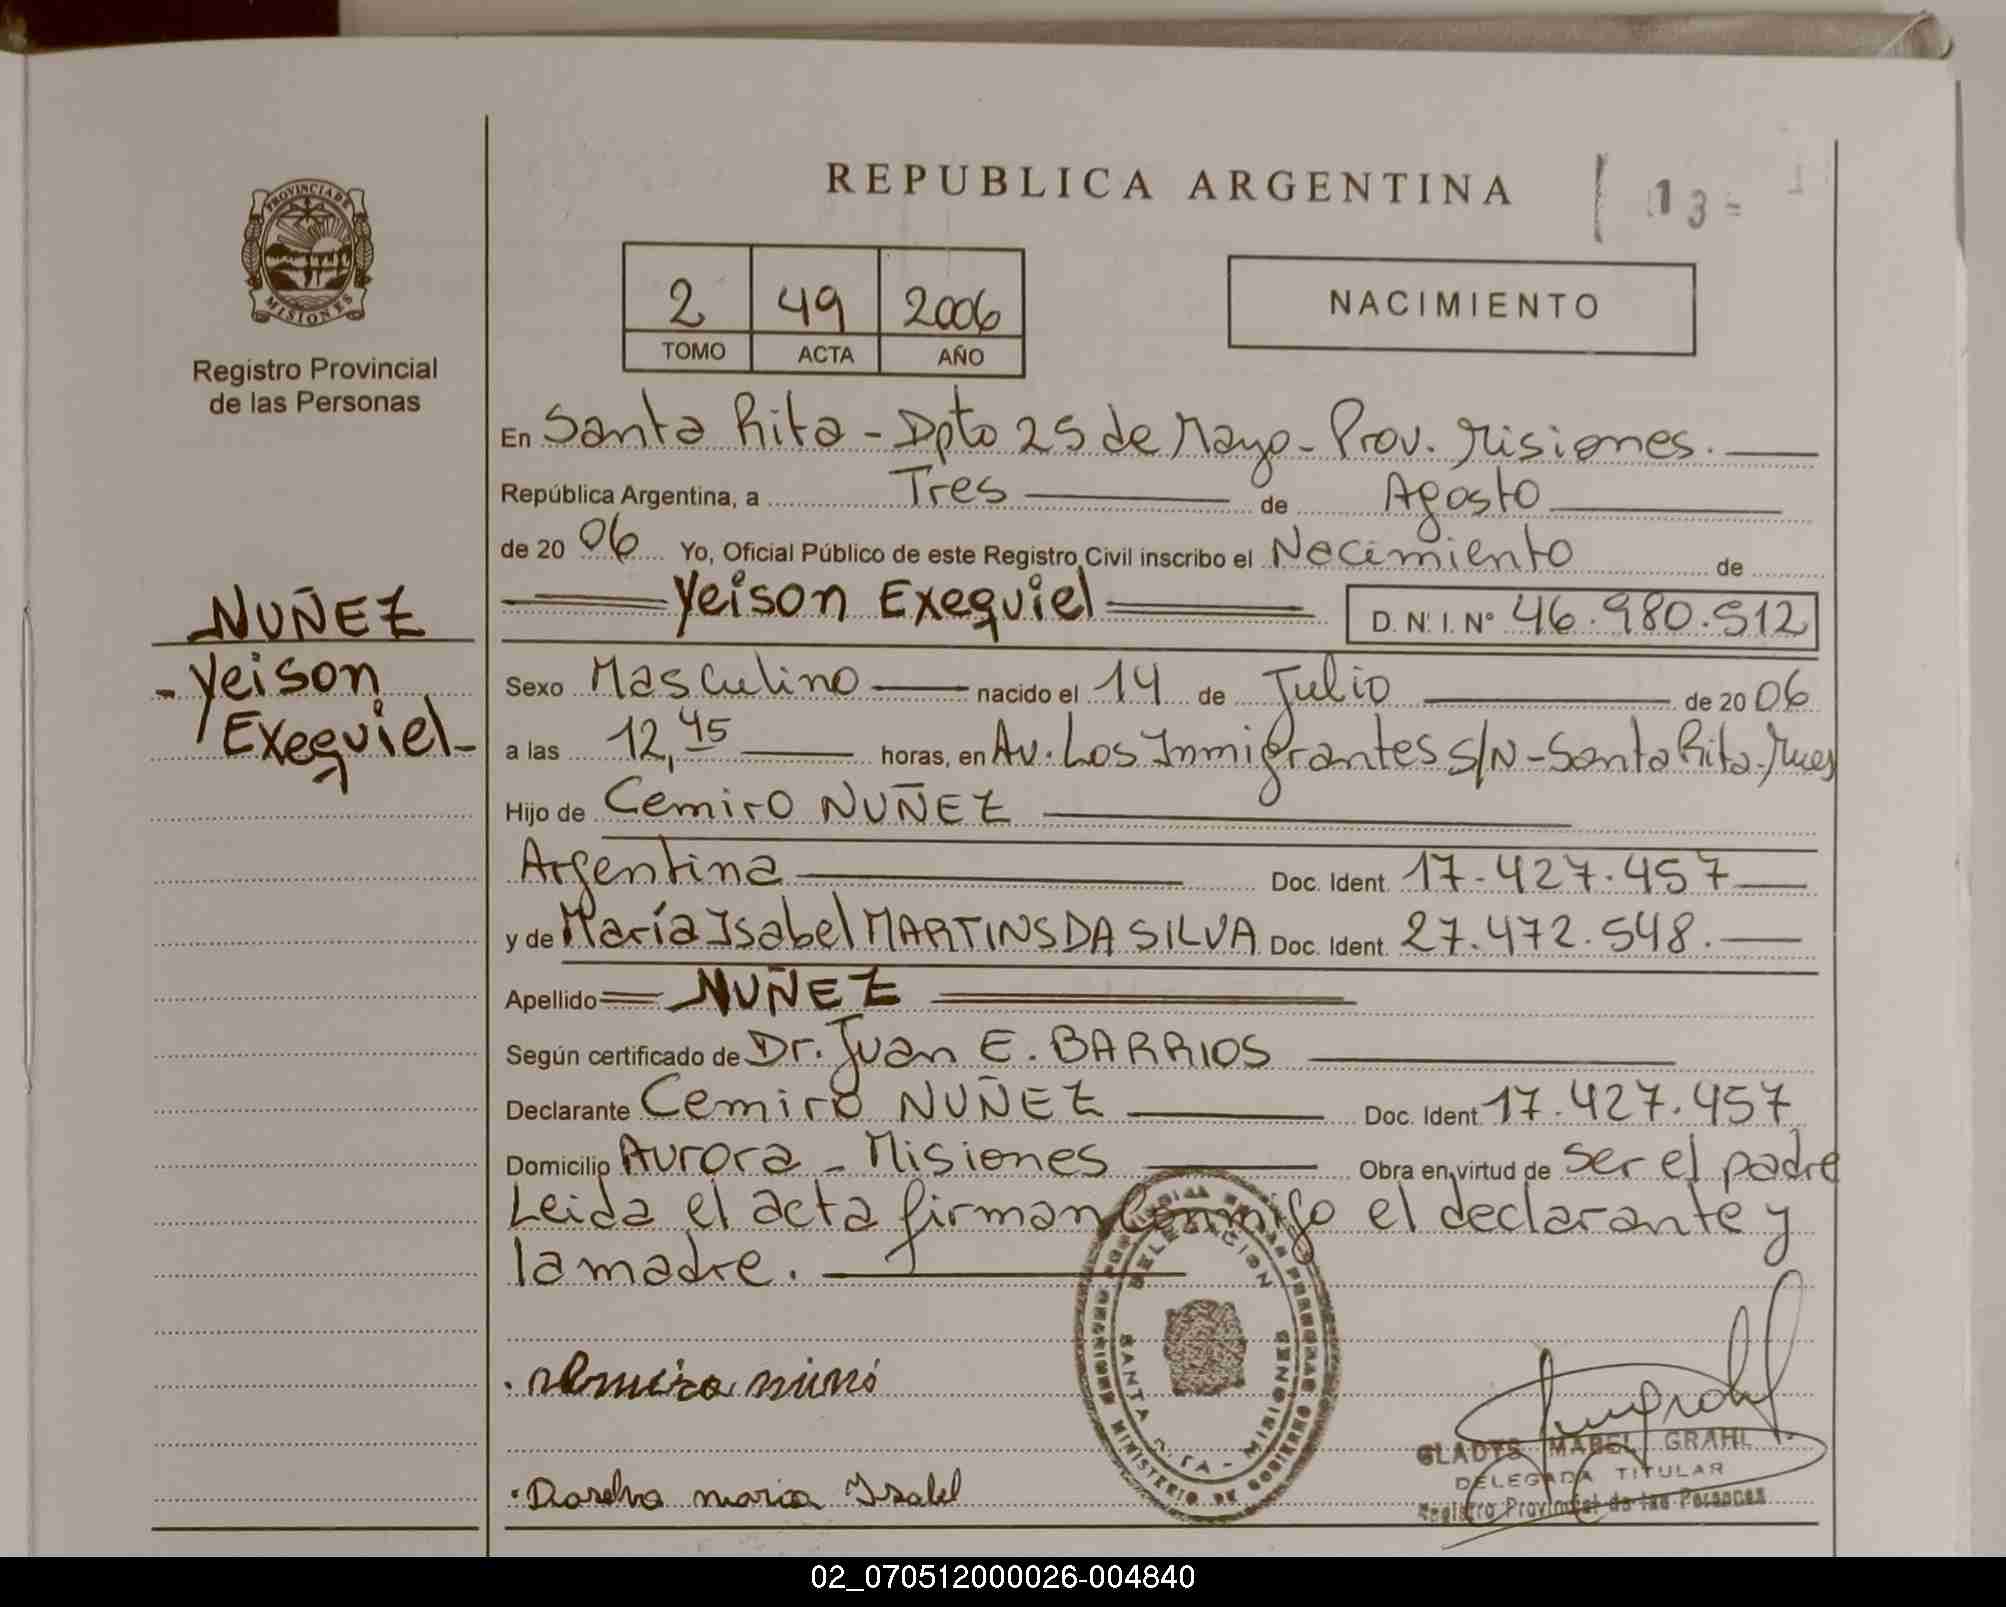 REPUBLICA ARGENTINA
13
PROVINCIA DE
MISIONES
Registro Provincial
de las Personas
2 49 2006
TOMO ACTA AÑO
NACIMIENTO
En Santa Rita - Dpto 25 de Mayo - Prov. Misiones.
República Argentina, a Tres de Agosto
de 20 06 Yo, Oficial Público de este Registro Civil inscribo el Nacimiento de
Yeison Exequiel D. N. I. Nº 46.980.512
NUÑEZ
- Yeison
Exequiel -
Sexo Masculino nacido el 14 de Julio de 20 06
a las 12,45 horas, en Av. Los Inmigrantes S/N - Santa Rita - Mnes
Hijo de Cemiro NUÑEZ
Argentina Doc. Ident. 17.427.457
y de María Isabel MARTINS DA SILVA Doc. Ident. 27.472.548.
Apellido NUÑEZ
Según certificado de Dr. Juan E. BARRIOS
Declarante Cemiro NUÑEZ Doc. Ident. 17.427.457
Domicilio Aurora - Misiones Obra en virtud de ser el padre
Leida el acta firman conmigo el declarante y
la madre.
DELEGACION
SANTA RITA - MISIONES
MINISTERIO DE GOBIERNO
maria Isabel
GLADYS MABEL GRAHL
DELEGADA TITULAR
Registro Provincial de las Personas
02_070512000026-004840